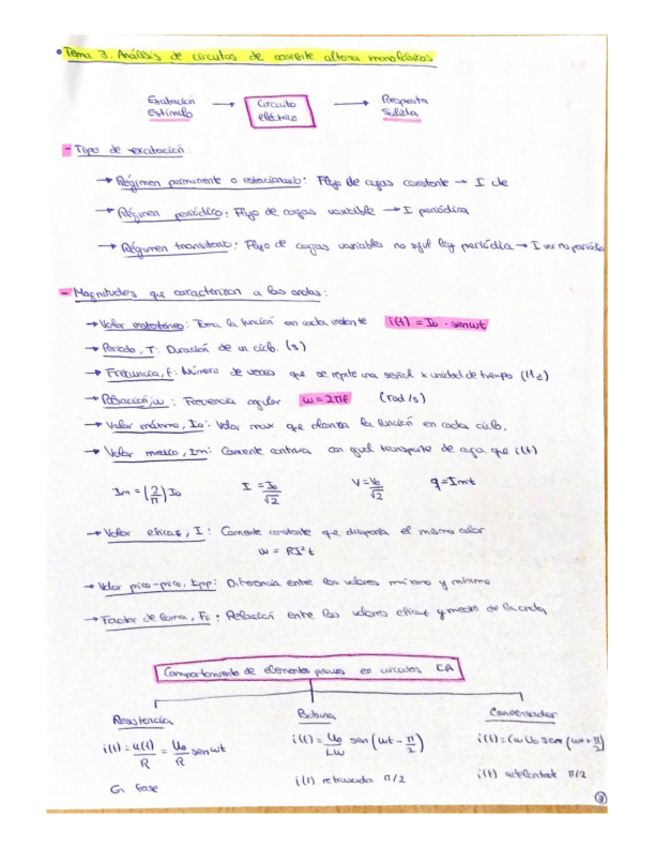 • Tema 3. Análisis de circuitos de corriente alterna monofásicos
Excitación → Circuito → Respuesta
Estímulo eléctrico Salida
- Tipo de excitación:
→ Régimen permanente o estacionario: Flujo de cargas constante → I cte
→ Régimen periódico: Flujo de cargas variable → I periódica
→ Régimen transitorio: Flujo de cargas variables no sigue ley periódica → I var no periódica
- Magnitudes que caracterizan a las ondas:
→ Valor instantáneo: Toma la función en cada instante i(t) = Io · senwt
→ Periodo, T: Duración de un ciclo. (s)
→ Frecuencia, f: Número de veces que se repite una señal x unidad de tiempo (Hz)
→ Pulsación, w: Frecuencia angular w = 2πf (rad/s)
→ Valor máximo, Io: Valor max que alcanza la función en cada ciclo.
→ Valor medio, Im: Corriente continua con igual transporte de carga que i(t)
Im = (2/π) Io I = Io/√2 V = Vo/√2 q = Im·t
→ Valor eficaz, I: Corriente constante que disiparía el mismo calor
w = RI²t
→ Valor pico-pico, Ipp: Diferencia entre los valores máximo y mínimo
→ Factor de forma, Ff: Relación entre los valores eficaz y medio de la onda
Comportamiento de elementos pasivos en circuitos CA
Resistencia Bobina Condensador
i(t) = u(t)/R = Uo/R senwt i(t) = Uo/Lw sen (wt - π/2) i(t) = CwUo sen (wt + π/2)
En fase i(t) retrasada π/2 i(t) adelantada π/2